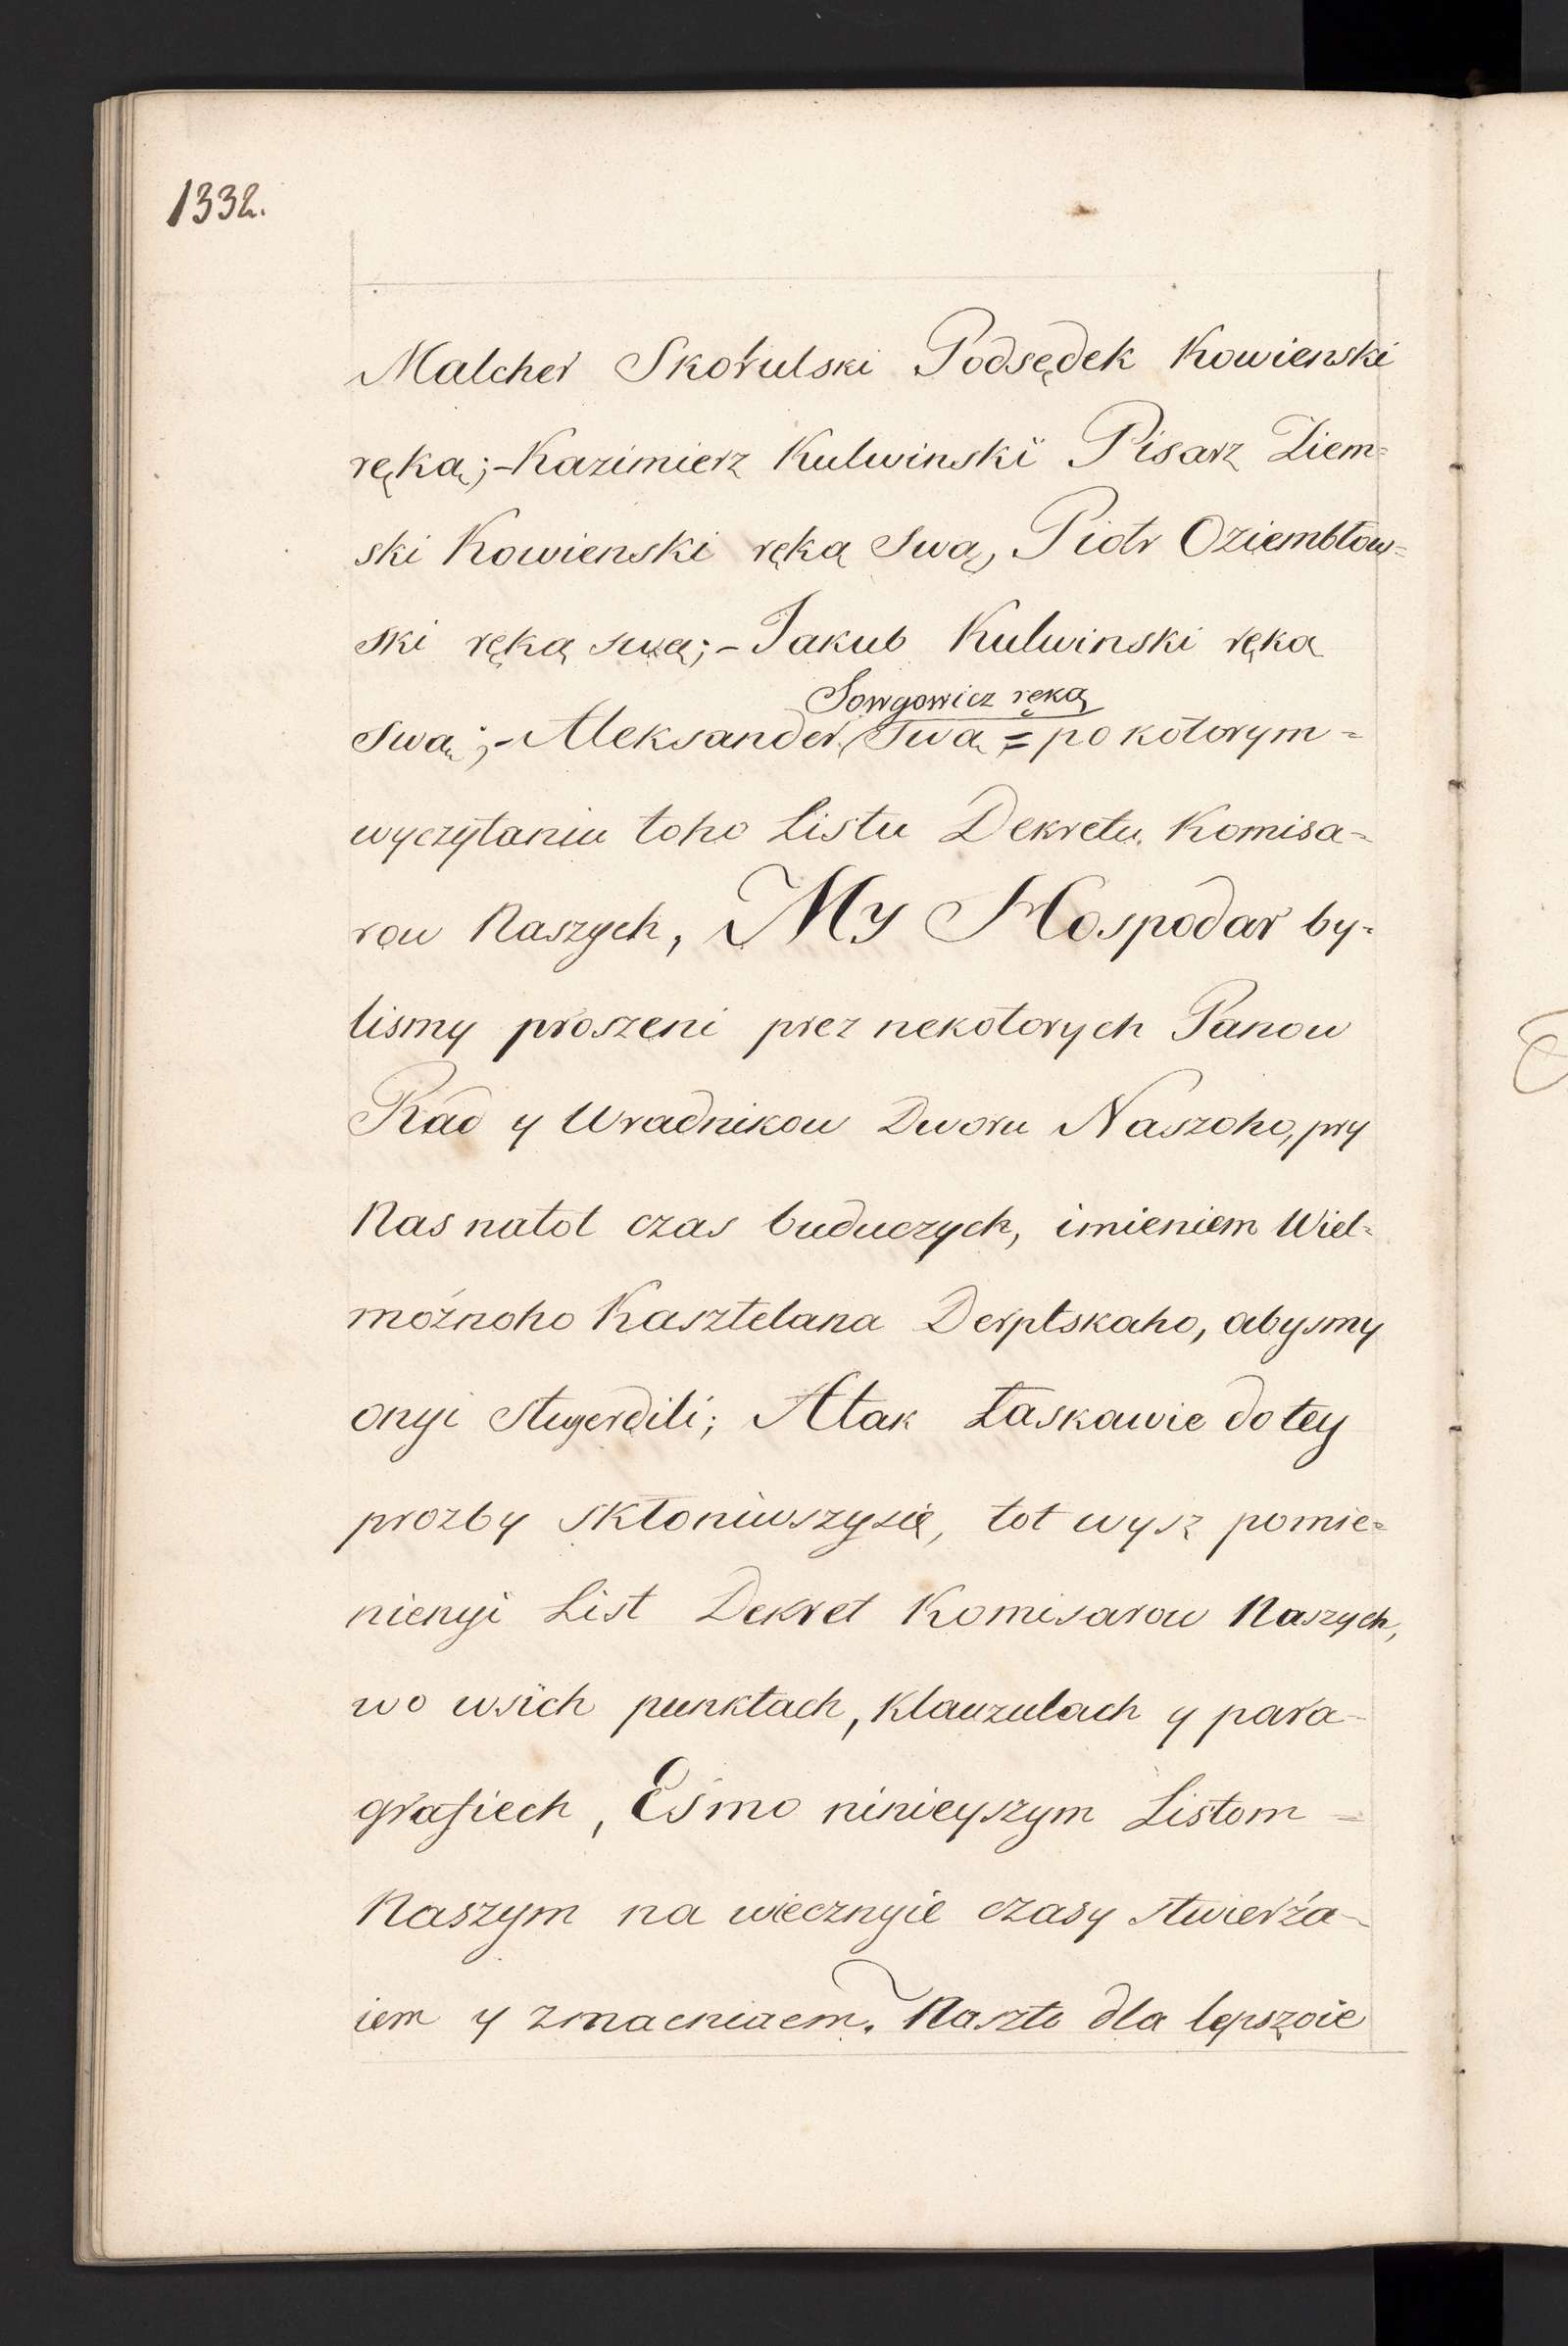 1332.
Malcher Skorulski Podsędek Kowienski
ręką;-Kazimierz Kulwinski Pisarz Ziem=
ski Kowienski ręką Swą, Piotr Oziembłow=
ski ręką swą;-Jakub Kulwinski ręką
Sowgowicz ręką
Swą;-Aleksander Swą = po kotorym=
wyczytaniu toho Listu Dekretu Komisa=
row Naszych, My Hospodar by=
lismy proszeni prez nekotorych Panow
Rad y Uradnikow Dworu Naszoho, pry
Nas natot czas buduczych, imieniem Wiel=
możnoho Kasztelana Derptskaho, abysmy
onyi stwerdili; Atak Łaskawie do tey
prozby skłoniwszysię, tot wysz pomie=
nienyi List Dekret Komisarow Naszych,
wo wsich punktach, klauzulach y para-
grafiech, Eśmo ninieyszym Listom =
Naszym na wiecznyie czasy stwierża-
iem y zmacniaem. Naszto dla lepszoie